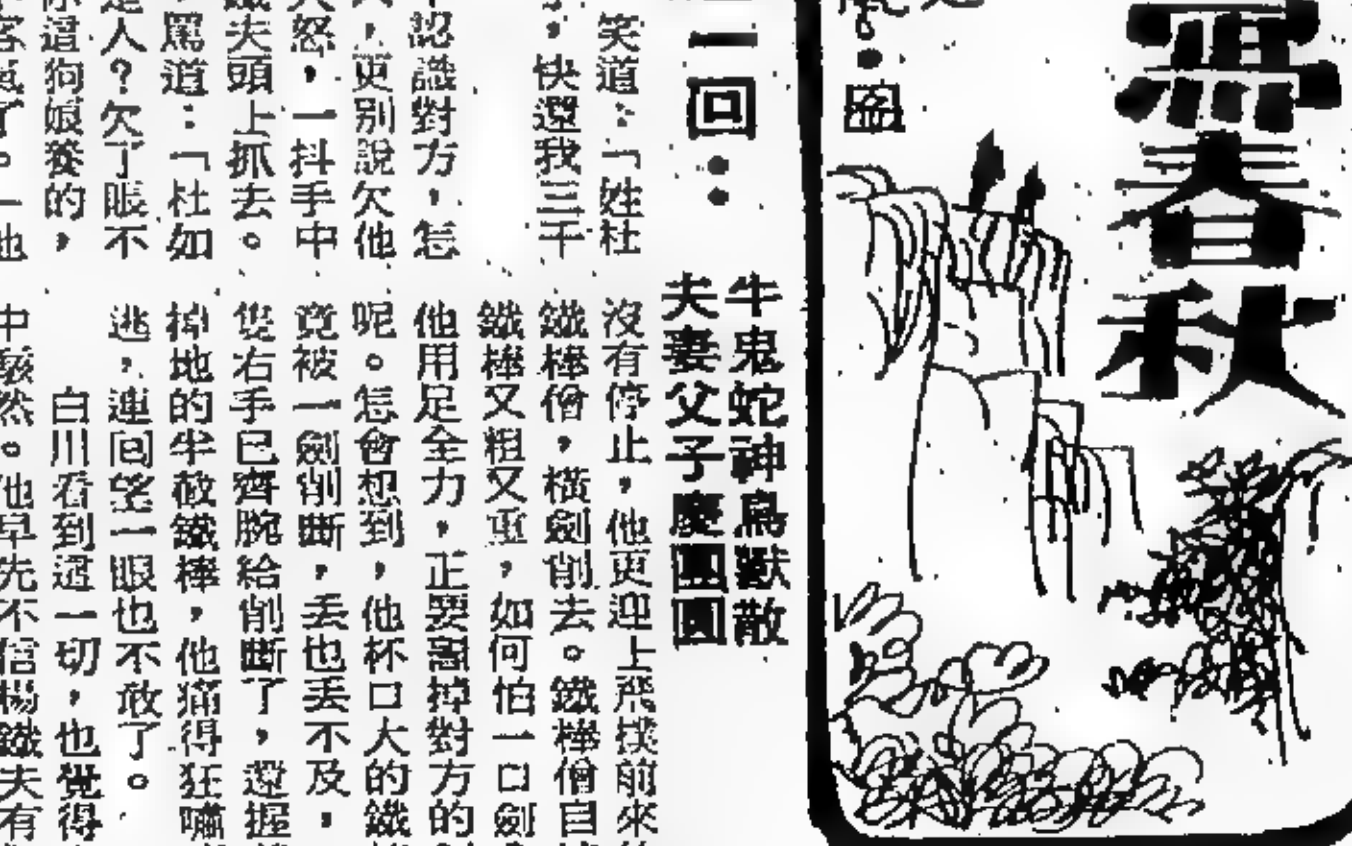 春秋
圖
一回：
牛鬼蛇神鳥獸散
夫妻父子慶團圓
笑道：「姓杜
，快還我三千
認識對方，怎
，更别說欠他
怒，一抖手中
夫頭上抓去。
罵道：「杜如
人？欠了賬不
這狗娘養的，
客氣了。」他
沒有停止，他更迎上飛撲前來
鐵棒僧，橫劍削去。鐵棒僧自
鐵棒又粗又重，如何怕一口劍
他用足全力，正要掉對方的
呢。怎會想到，他杯口大的鐵
竟被一劍削斷，丢也丢不及，
隻右手已齊腕給削斷了，還握
掉地的半截鐵棒，他痛得狂嘯
逃，連回望一眼也不敢了。
白川看到這一切，也覺得
中駭然。他早先不信楊鐵夫有